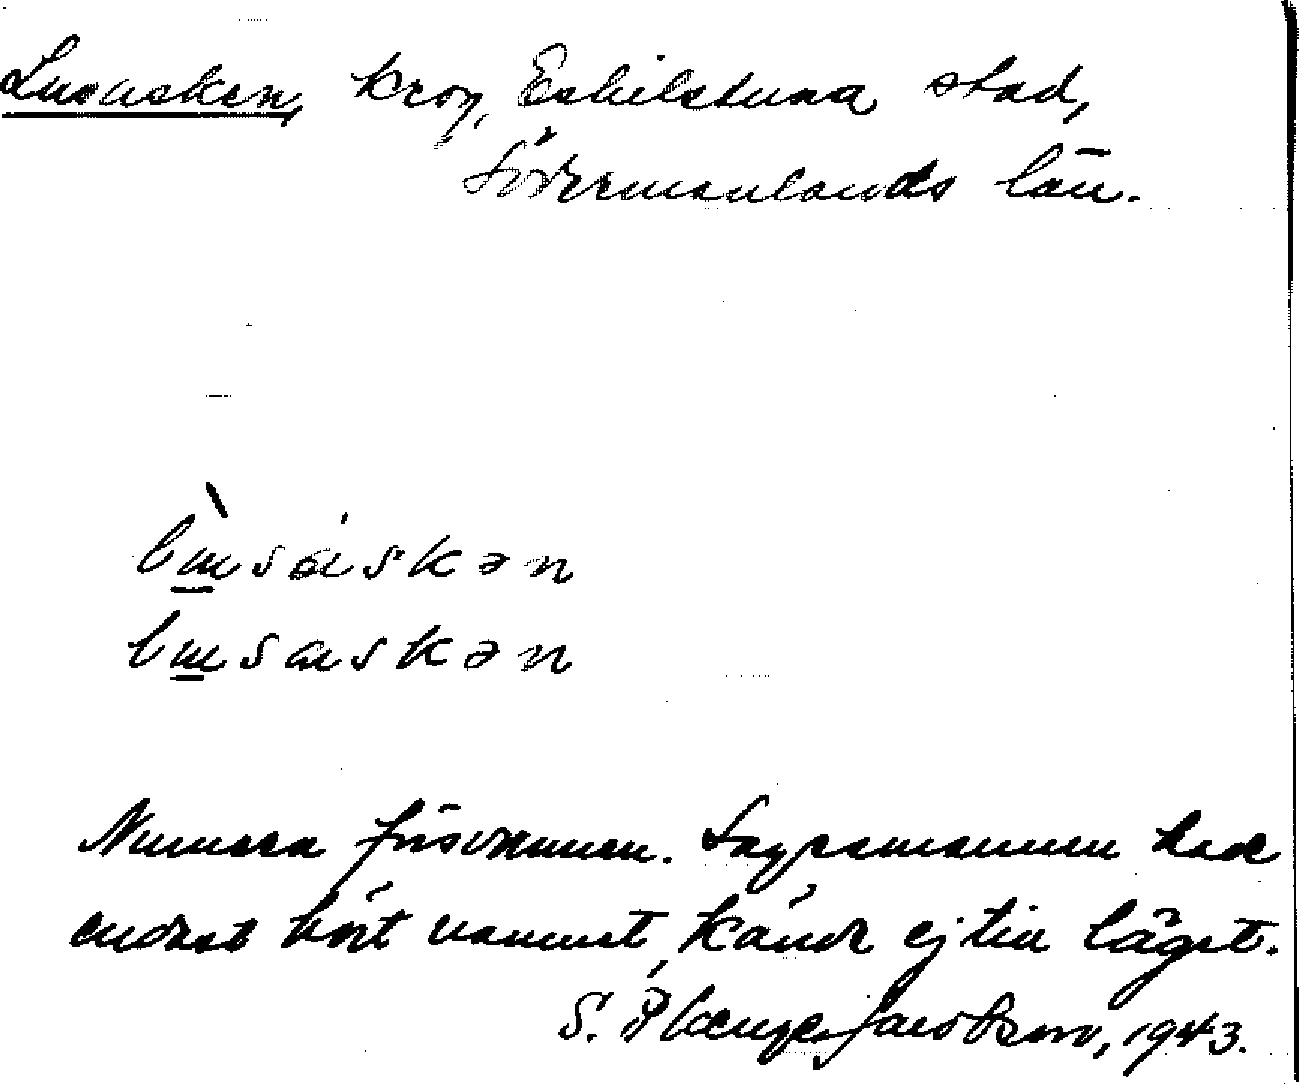 Lusasken, krog, Eskilstuna stad,
Södermanlands län.
lù̲sáskən
lu̲saskən
Numera försvunnen. Sagesmannen hade
endast hört namnet, kände ej till läget.
S. Jacobsson, 1943.